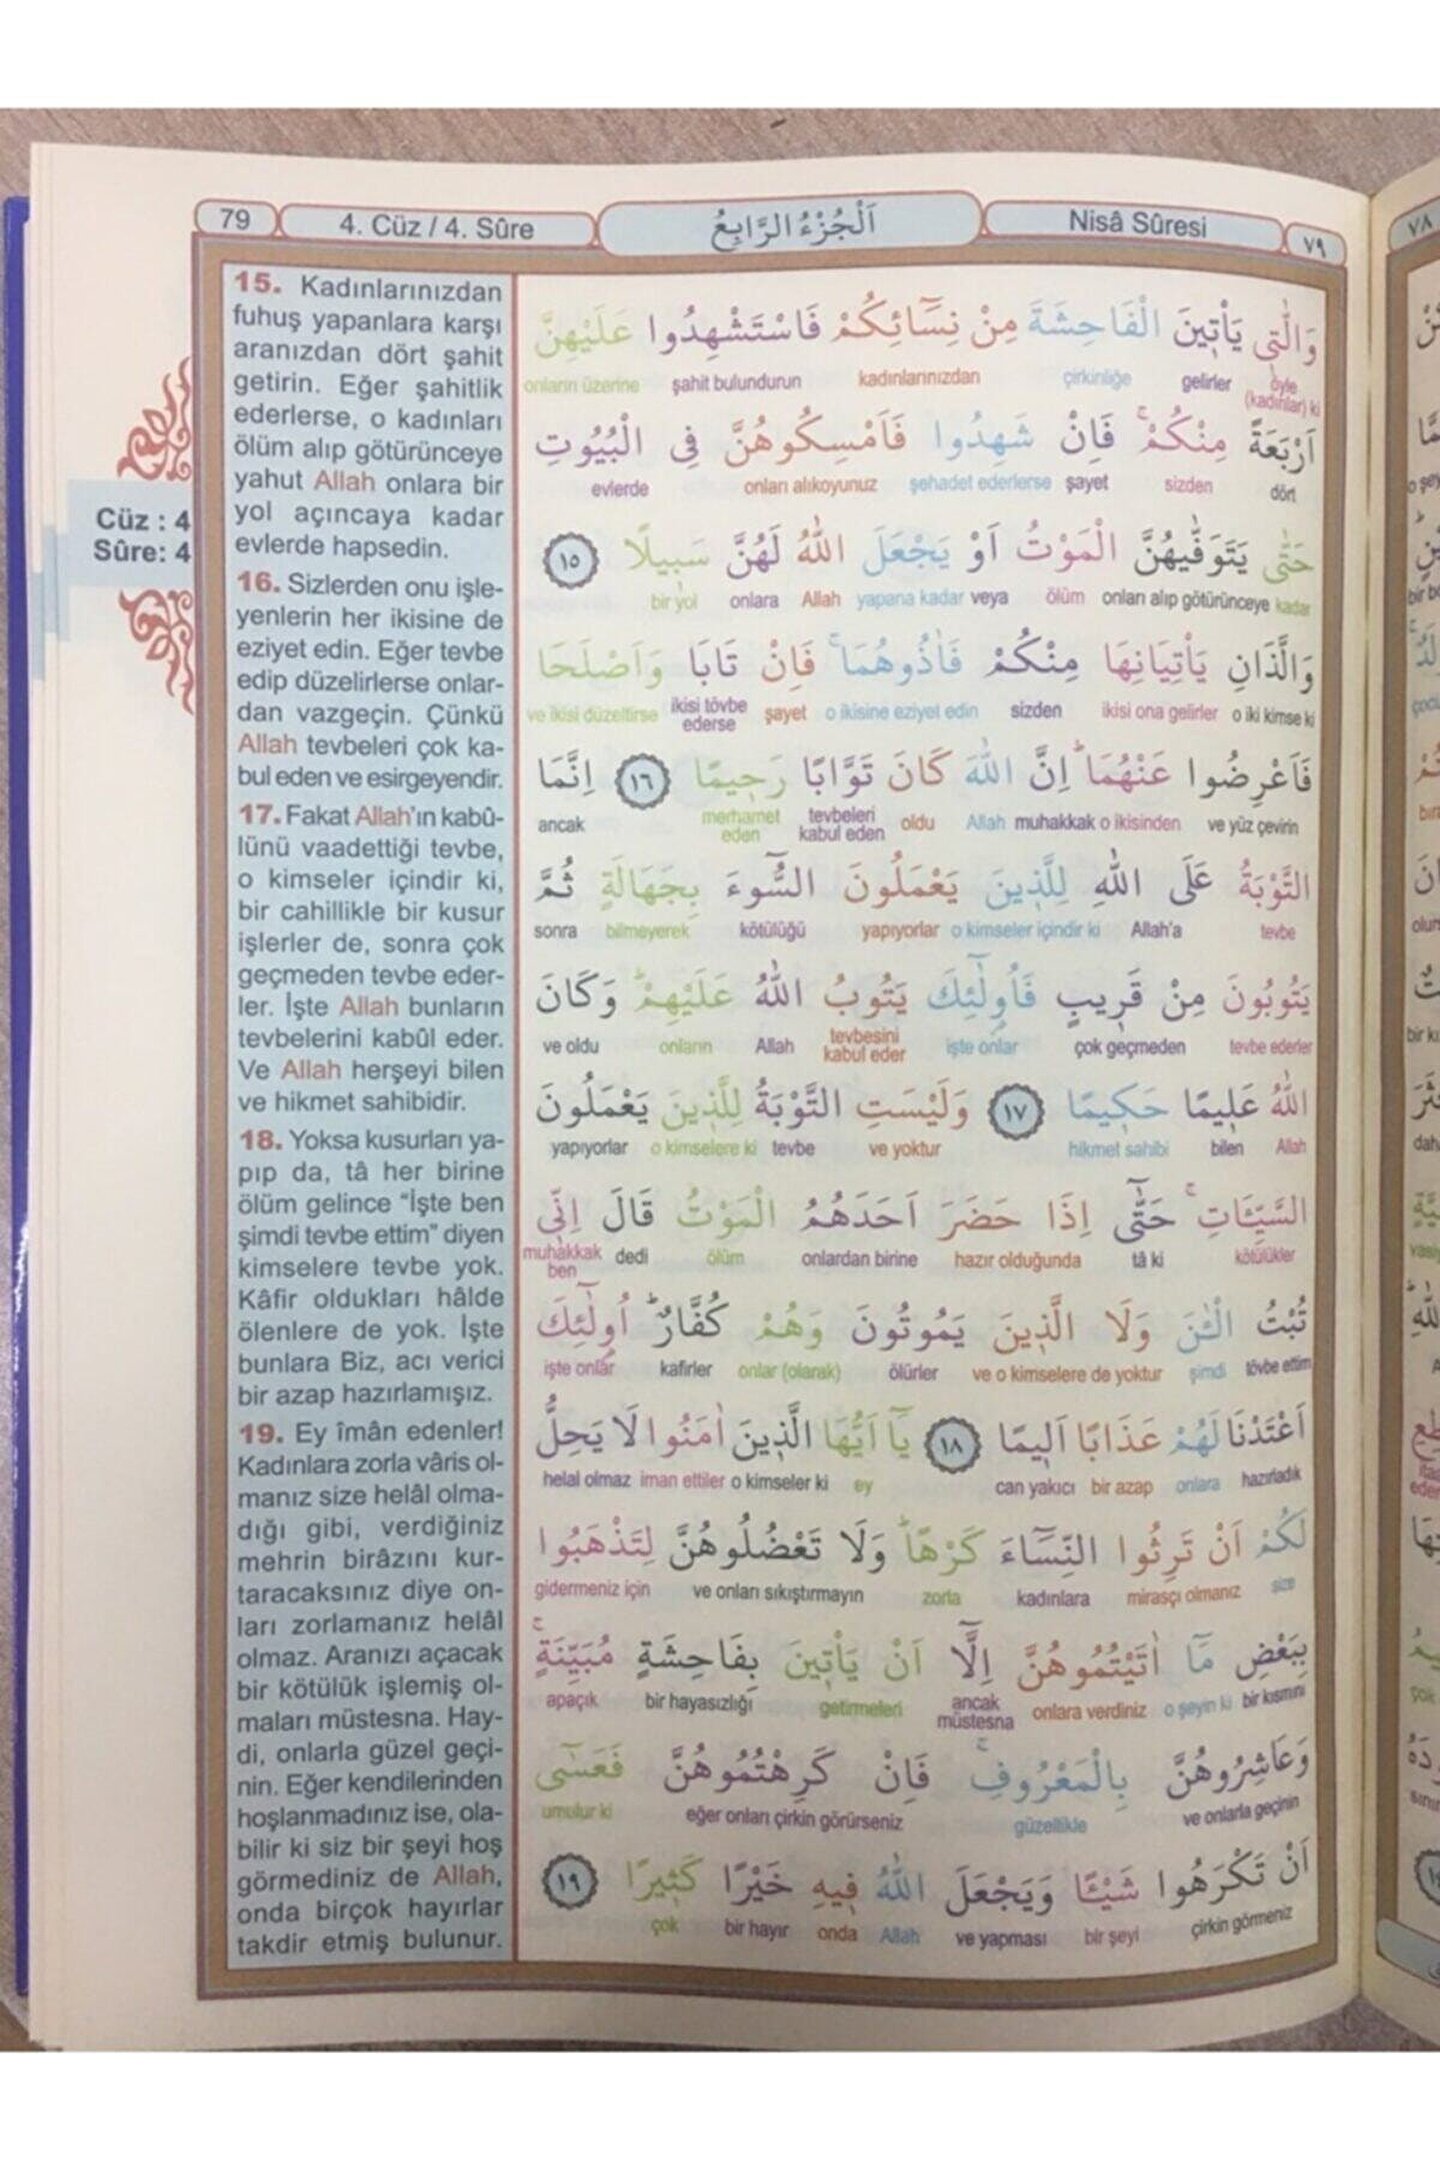 79
4. Cüz / 4. Sûre
اَلْجُزْءُ الرَّابِعُ
Nisâ Sûresi
٧٩
Cüz : 4
Sûre: 4
15. Kadınlarınızdan
fuhuş yapanlara karşı
aranızdan dört şahit
getirin. Eğer şahitlik
ederlerse, o kadınları
ölüm alıp götürünceye
yahut Allah onlara bir
yol açıncaya kadar
evlerde hapsedin.
16. Sizlerden onu işle-
yenlerin her ikisine de
eziyet edin. Eğer tevbe
edip düzelirlerse onlar-
dan vazgeçin. Çünkü
Allah tevbeleri çok ka-
bul eden ve esirgeyendir.
17. Fakat Allah'ın kabû-
lünü vaadettiği tevbe,
o kimseler içindir ki,
bir cahillikle bir kusur
işlerler de, sonra çok
geçmeden tevbe eder-
ler. İşte Allah bunların
tevbelerini kabûl eder.
Ve Allah herşeyi bilen
ve hikmet sahibidir.
18. Yoksa kusurları ya-
pıp da, tâ her birine
ölüm gelince “İşte ben
şimdi tevbe ettim” diyen
kimselere tevbe yok.
Kâfir oldukları hâlde
ölenlere de yok. İşte
bunlara Biz, acı verici
bir azap hazırlamışız.
19. Ey îmân edenler!
Kadınlara zorla vâris ol-
manız size helâl olma-
dığı gibi, verdiğiniz
mehrin birâzını kur-
taracaksınız diye on-
ları zorlamanız helâl
olmaz. Aranızı açacak
bir kötülük işlemiş ol-
maları müstesna. Hay-
di, onlarla güzel geçi-
nin. Eğer kendilerinden
hoşlanmadınız ise, ola-
bilir ki siz bir şeyi hoş
görmediniz de Allah,
onda birçok hayırlar
takdir etmiş bulunur.
وَالّٰتِى يَأْتٖينَ الْفَاحِشَةَ مِنْ نِسَٓائِكُمْ فَاسْتَشْهِدُوا عَلَيْهِنَّ
öyle (kadınlar) ki gelirler çirkinliğe kadınlarınızdan şahit bulundurun onların üzerine
اَرْبَعَةً مِنْكُمْۚ فَاِنْ شَهِدُوا فَاَمْسِكُوهُنَّ فِى الْبُيُوتِ
dört sizden şayet şehadet ederlerse onları alıkoyunuz evlerde
حَتّٰى يَتَوَفّٰيهُنَّ الْمَوْتُ اَوْ يَجْعَلَ اللّٰهُ لَهُنَّ سَبٖيلًا ﴿١٥﴾
kadar onları alıp götürünceye ölüm veya yapana kadar Allah onlara bir yol
وَالَّذَانِ يَأْتِيَانِهَا مِنْكُمْ فَاٰذُوهُمَاۚ فَاِنْ تَابَا وَاَصْلَحَا
o iki kimse ki ikisi ona gelirler sizden o ikisine eziyet edin şayet ikisi tövbe ederse ve ikisi düzeltirse
فَاَعْرِضُوا عَنْهُمَاؕ اِنَّ اللّٰهَ كَانَ تَوَّابًا رَحٖيمًا ﴿١٦﴾ اِنَّمَا
ve yüz çevirin o ikisinden muhakkak Allah oldu tevbeleri kabul eden merhamet eden ancak
التَّوْبَةُ عَلَى اللّٰهِ لِلَّذٖينَ يَعْمَلُونَ السُّٓوءَ بِجَهَالَةٍ ثُمَّ
tevbe Allah'a o kimseler içindir ki yapıyorlar kötülüğü bilmeyerek sonra
يَتُوبُونَ مِنْ قَرٖيبٍ فَاُولٰٓئِكَ يَتُوبُ اللّٰهُ عَلَيْهِمْؕ وَكَانَ
tevbe ederler çok geçmeden işte onlar tevbesini kabul eder Allah onların ve oldu
اللّٰهُ عَلٖيمًا حَكٖيمًا ﴿١٧﴾ وَلَيْسَتِ التَّوْبَةُ لِلَّذٖينَ يَعْمَلُونَ
Allah bilen hikmet sahibi ve yoktur tevbe o kimselere ki yapıyorlar
السَّيِّـَٔاتِۚ حَتّٰٓى اِذَا حَضَرَ اَحَدَهُمُ الْمَوْتُ قَالَ اِنّٖى
kötülükler tâ ki hazır olduğunda onlardan birine ölüm dedi muhakkak ben
تُبْتُ الْـٰٔنَ وَلَا الَّذٖينَ يَمُوتُونَ وَهُمْ كُفَّارٌؕ اُولٰٓئِكَ
tövbe ettim şimdi ve o kimselere de yoktur ölürler onlar (olarak) kafirler işte onlar
اَعْتَدْنَا لَهُمْ عَذَابًا اَلٖيمًا ﴿١٨﴾ يَٓا اَيُّهَا الَّذٖينَ اٰمَنُوا لَا يَحِلُّ
hazırladık onlara bir azap can yakıcı ey o kimseler ki iman ettiler helal olmaz
لَكُمْ اَنْ تَرِثُوا النِّسَٓاءَ كَرْهًاؕ وَلَا تَعْضُلُوهُنَّ لِتَذْهَبُوا
size mirasçı olmanız kadınlara zorla ve onları sıkıştırmayın gidermeniz için
بِبَعْضِ مَٓا اٰتَيْتُمُوهُنَّ اِلَّٓا اَنْ يَأْتٖينَ بِفَاحِشَةٍ مُبَيِّنَةٍۚ
bir kısmını o şeyin ki onlara verdiniz ancak müstesna getirmeleri bir hayasızlığı apaçık
وَعَاشِرُوهُنَّ بِالْمَعْرُوفِۚ فَاِنْ كَرِهْتُمُوهُنَّ فَعَسٰٓى
ve onlarla geçinin güzellikle eğer onları çirkin görürseniz umulur ki
اَنْ تَكْرَهُوا شَيْـًٔا وَيَجْعَلَ اللّٰهُ فٖيهِ خَيْرًا كَثٖيرًا ﴿١٩﴾
çirkin görmeniz bir şeyi ve yapması Allah onda bir hayır çok
٧٨